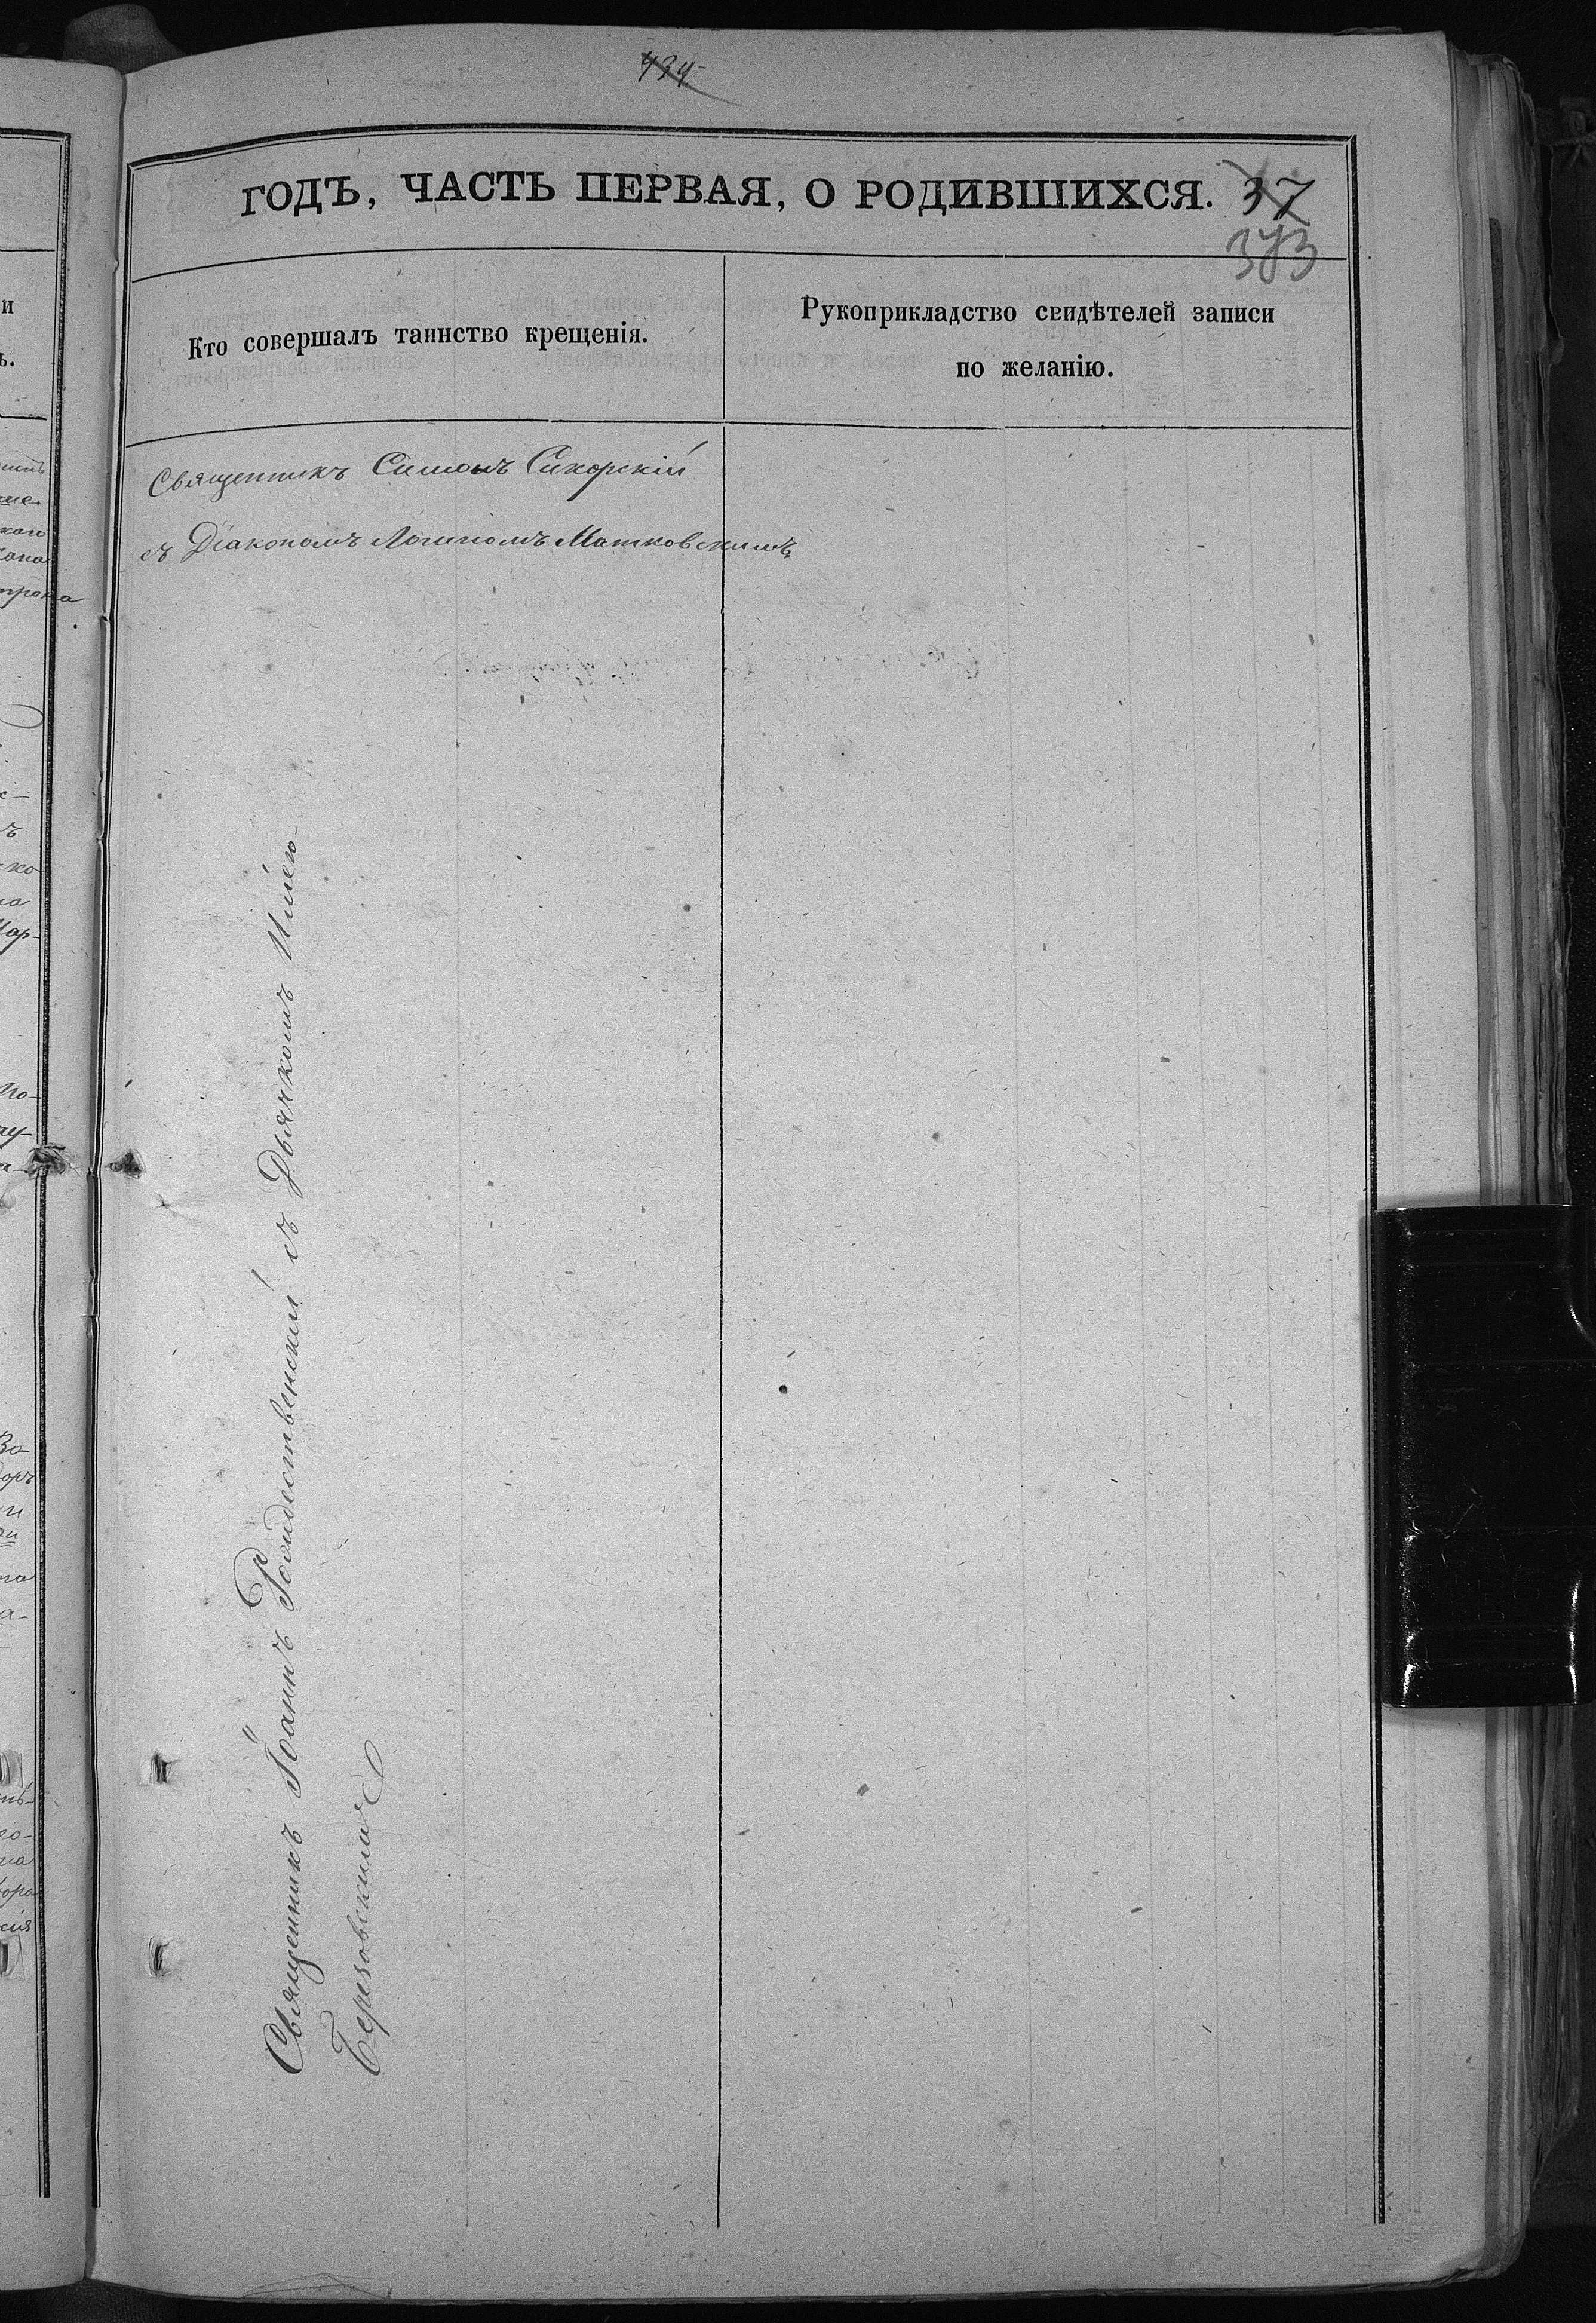 434
ГОДЪ, ЧАСТЬ ПЕРВАЯ, О РОДИВШИХСЯ. 37
373
Кто совершалъ таинство крещенія.
Рукоприкладство свидѣтелей записи
по желанію.
Священникъ Симонъ Сикорскій
съ Діакономъ Логиномъ Матковскимъ
Священникъ Іоаннъ Рождественскій съ Дьячкомъ Иліею
Березовскимъ